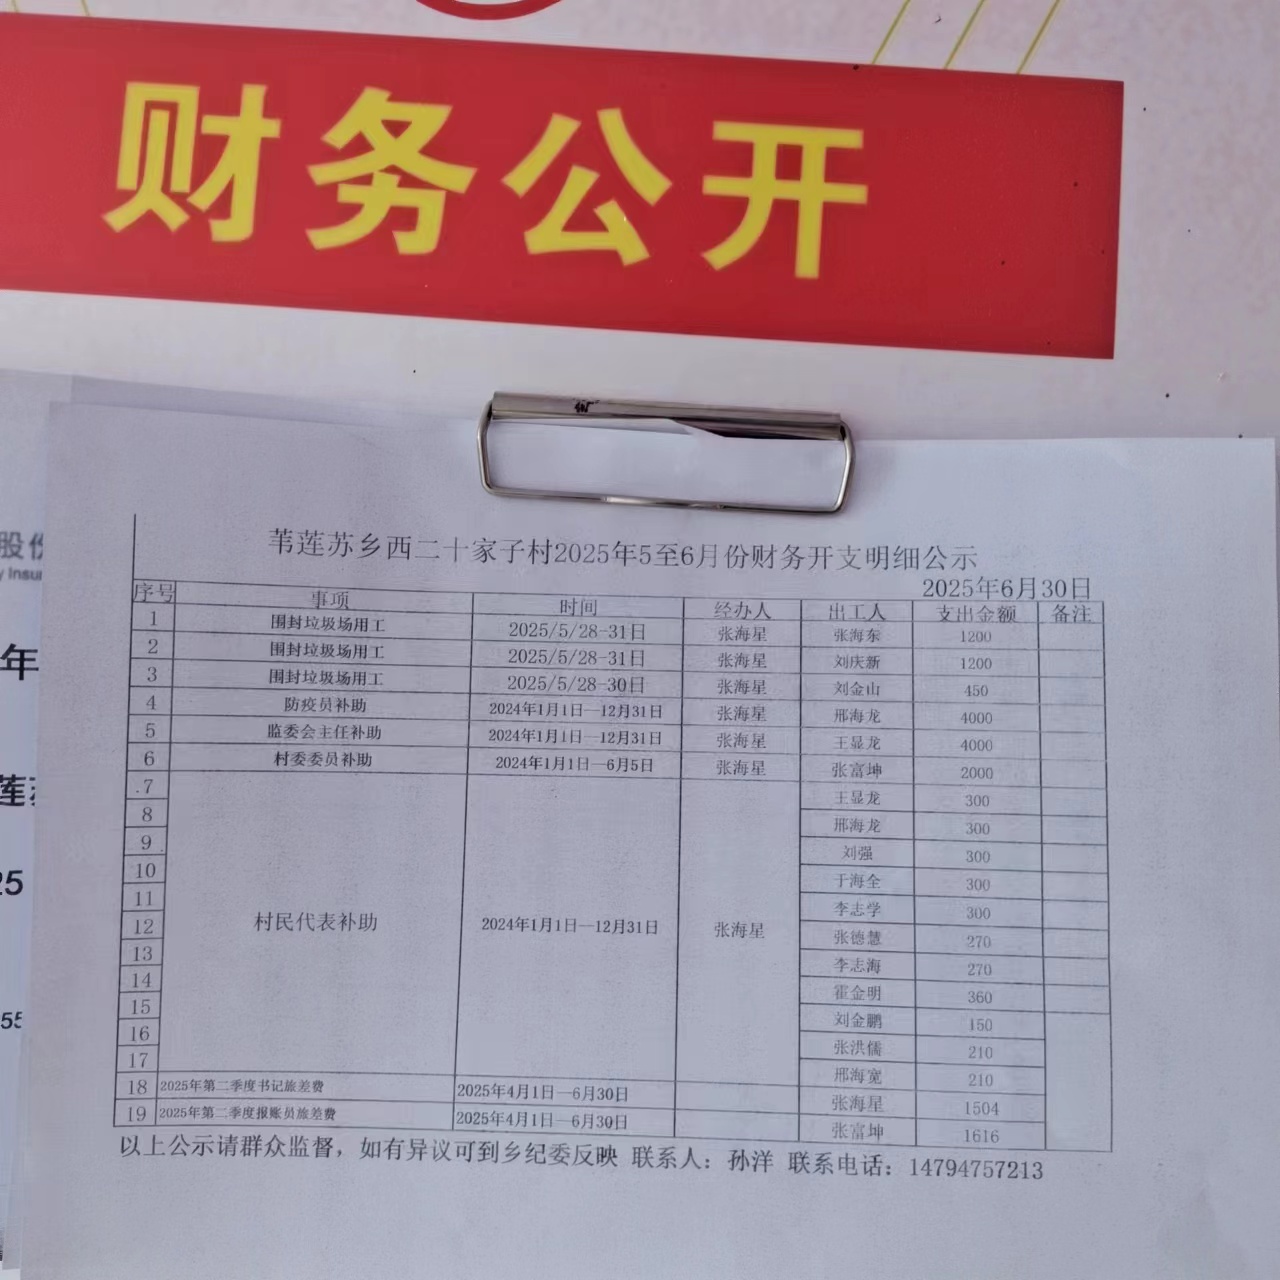 财务公开
股份
y Insur
年
莲苏
25
55
苇莲苏乡西二十家子村2025年5至6月份财务开支明细公示
2025年6月30日
序号 事项 时间 经办人 出工人 支出金额 备注
1 围封垃圾场用工 2025/5/28-31日 张海星 张海东 1200
2 围封垃圾场用工 2025/5/28-31日 张海星 刘庆新 1200
3 围封垃圾场用工 2025/5/28-30日 张海星 刘金山 450
4 防疫员补助 2024年1月1日—12月31日 张海星 邢海龙 4000
5 监委会主任补助 2024年1月1日—12月31日 张海星 王显龙 4000
6 村委委员补助 2024年1月1日—6月5日 张海星 张富坤 2000
7 村民代表补助 2024年1月1日—12月31日 张海星 王显龙 300
8 邢海龙 300
9 刘强 300
10 于海全 300
11 李志学 300
12 张德慧 270
13 李志海 270
14 霍金明 360
15 刘金鹏 150
16 张洪儒 210
17 邢海宽 210
18 2025年第二季度书记旅差费 2025年4月1日—6月30日 张海星 1504
19 2025年第二季度报账员旅差费 2025年4月1日—6月30日 张富坤 1616
以上公示请群众监督，如有异议可到乡纪委反映 联系人：孙洋 联系电话：14794757213